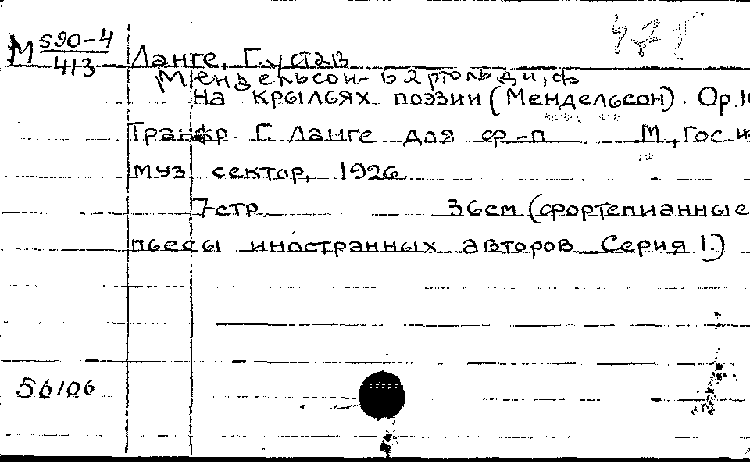 М 590-4
413
Ланге, Густав
Мендельсон-Бартольди, Ф
На крыльях поэзии (Мендельсон). Op.
Транскр Г. Ланге для ф-п М., Гос
муз сектор, 1926
7 стр 36см (фортепианные
пьесы иностранных авторов Серия I.)
56106